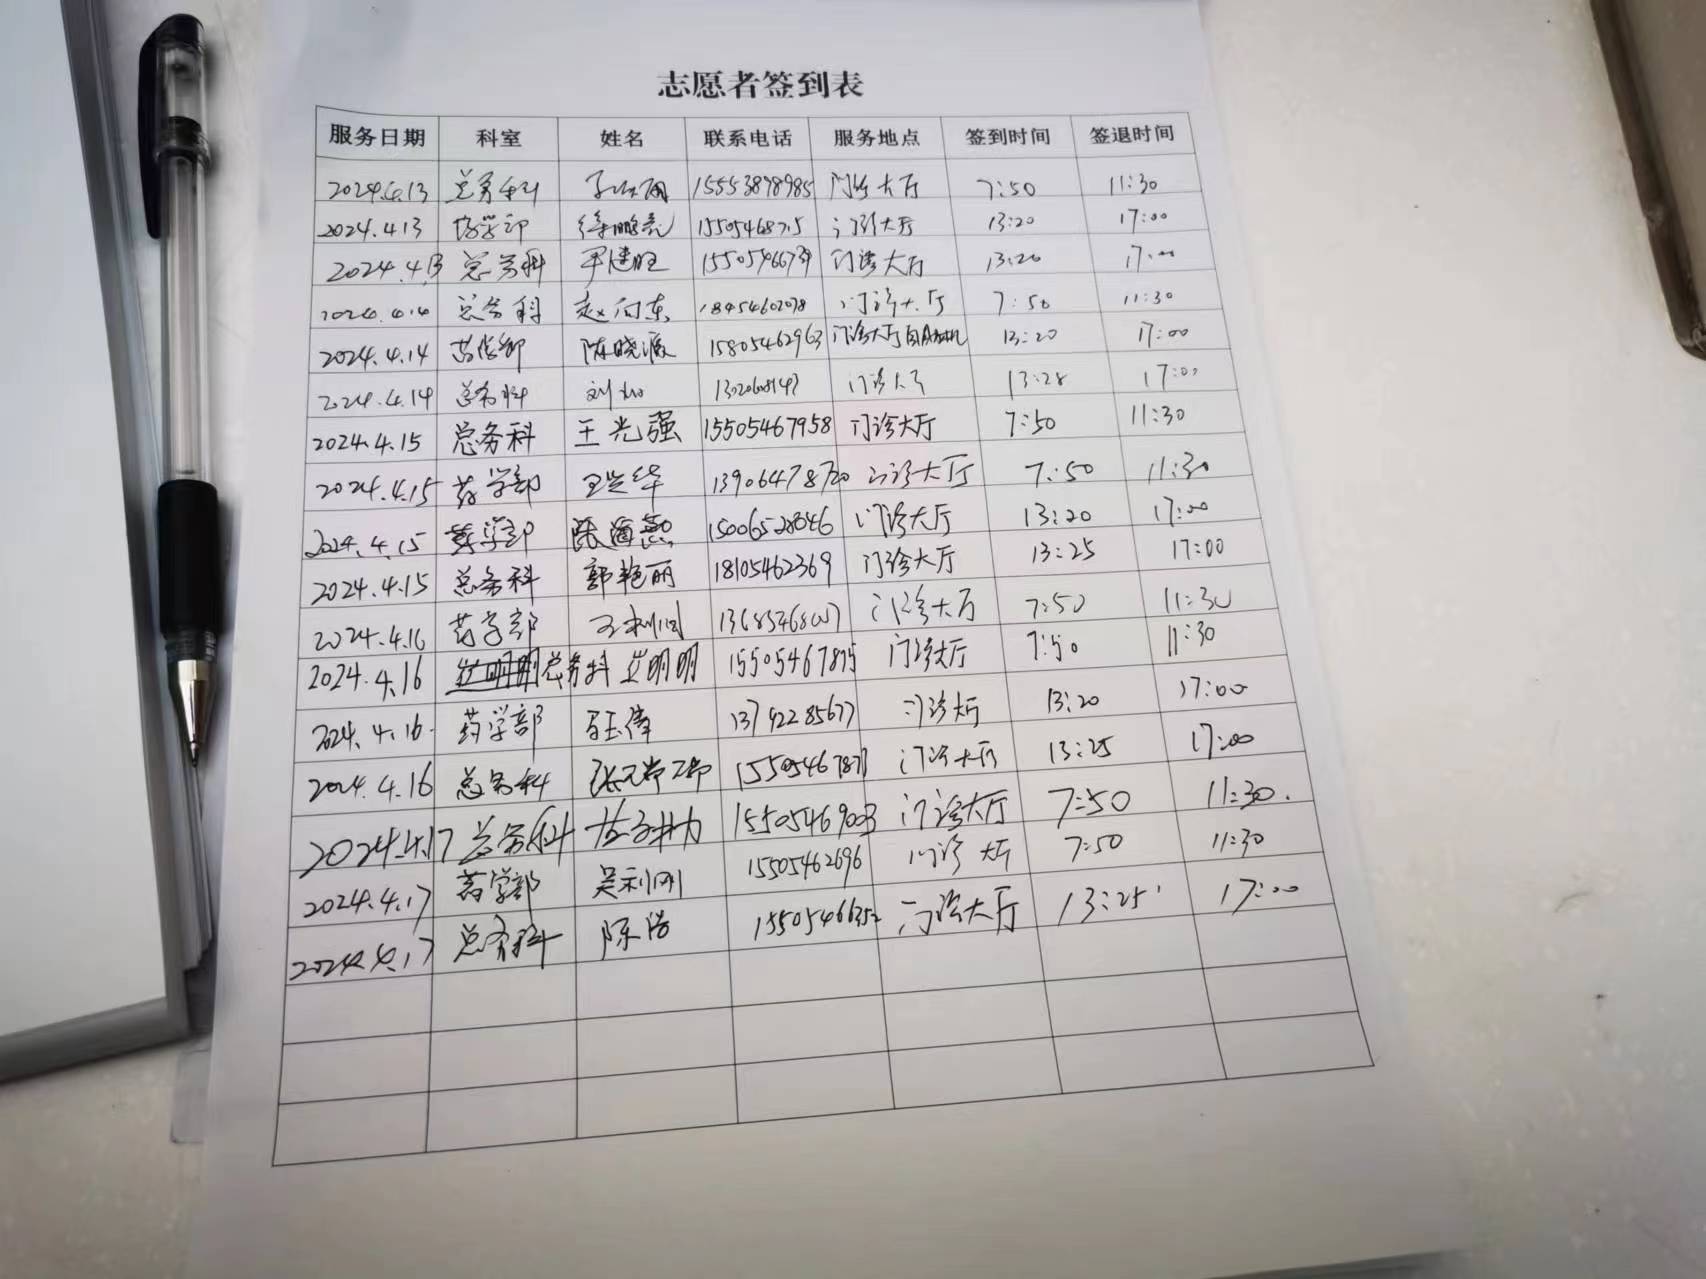 志愿者签到表
服务日期 科室 姓名 联系电话 服务地点 签到时间 签退时间
2024.4.13 总务科 15553898985 门诊大厅 7:50 11:30
2024.4.13 药学部 徐鹏亮 门诊大厅 13:20 17:00
2024.4.13 总务科 尹建旺 15505466739 门诊大厅 13:20 17:00
2024.4.14 总务科 赵向东 18454602078 门诊大厅 7:50 11:30
2024.4.14 药学部 陈晓源 15805462963 门诊大厅 13:20 17:00
2024.4.14 总务科 门诊大厅 13:28 17:00
2024.4.15 总务科 王光强 15505467958 门诊大厅 7:50 11:30
2024.4.15 药学部 王兴华 13906478720 门诊大厅 7:50 11:30
2024.4.15 药学部 15006528846 门诊大厅 13:20 17:00
2024.4.15 总务科 郭艳丽 18105462369 门诊大厅 13:25 17:00
2024.4.16 药学部 门诊大厅 7:50 11:30
2024.4.16 总务科 丛明明 15505467875 门诊大厅 7:50 11:30
2024.4.16 药学部 13792285677 门诊大厅 13:20 17:00
2024.4.16 总务科 15505467877 门诊大厅 13:25 17:00
2024.4.17 总务科 15505469003 门诊大厅 7:50 11:30
2024.4.17 药学部 吴利刚 15505462696 门诊大厅 7:50 11:30
2024.4.17 总务科 陈浩 15505466352 门诊大厅 13:25 17:00